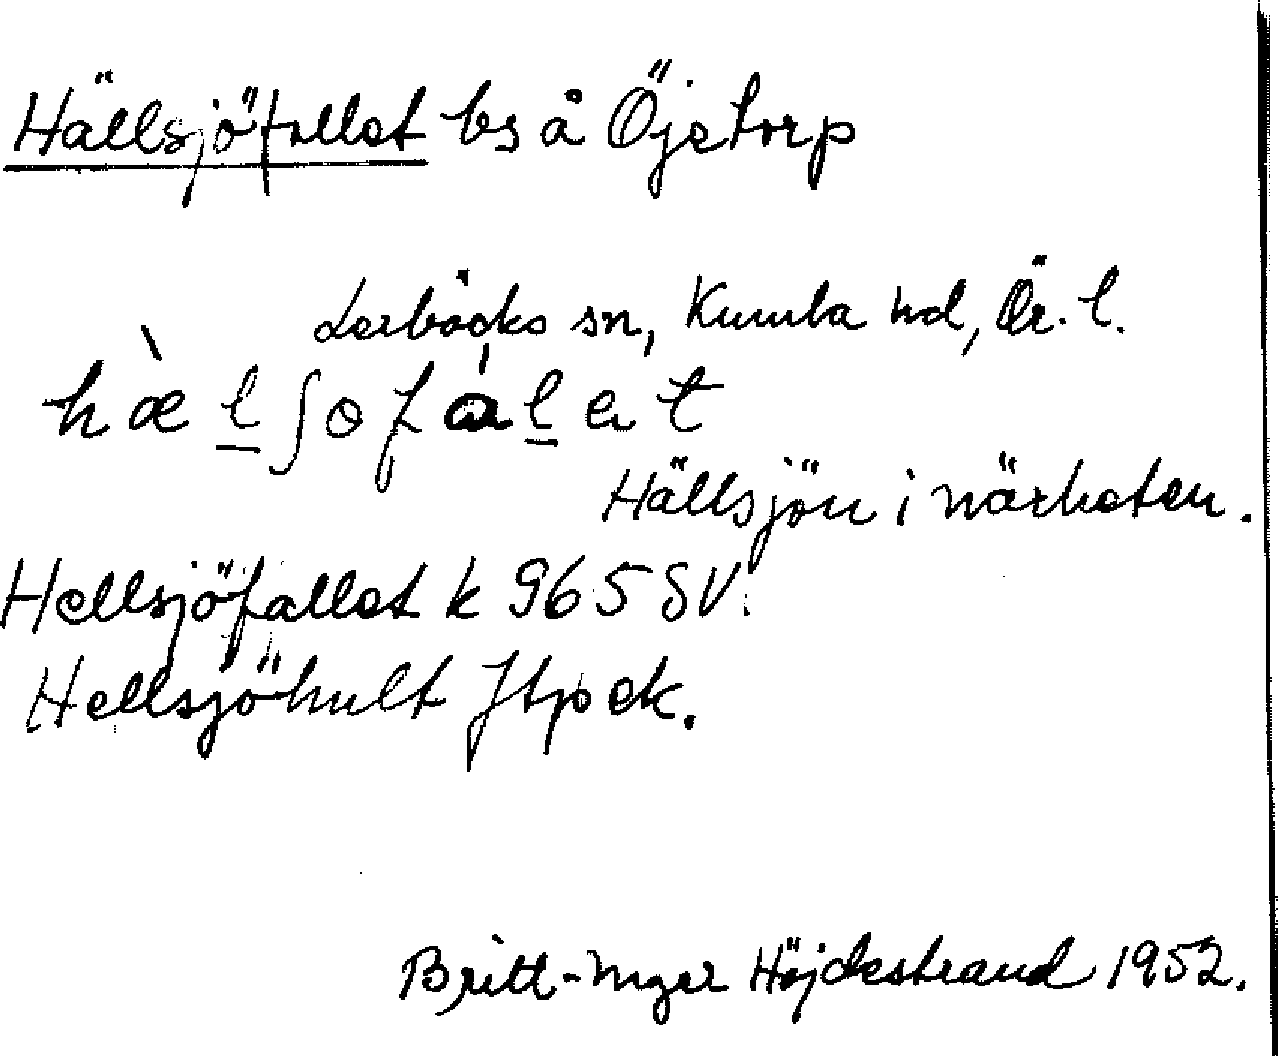 Hällsjöfallet bs å Öjetorp
Lerbäcks sn, Kumla hd, Ör. l.
hæ̀lʃofálət
Hällsjön i närheten.
Hellsjöfallet k 965 SV.
Hellsjöhult Jtpek.
Britt-Inger Höjdestrand 1952.